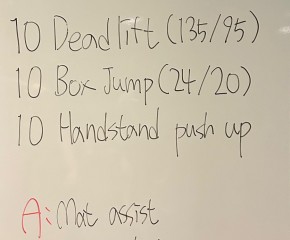 10 Deadlift (135/95)
10 Box Jump (24/20)
10 Handstand push up
A: Mat assist